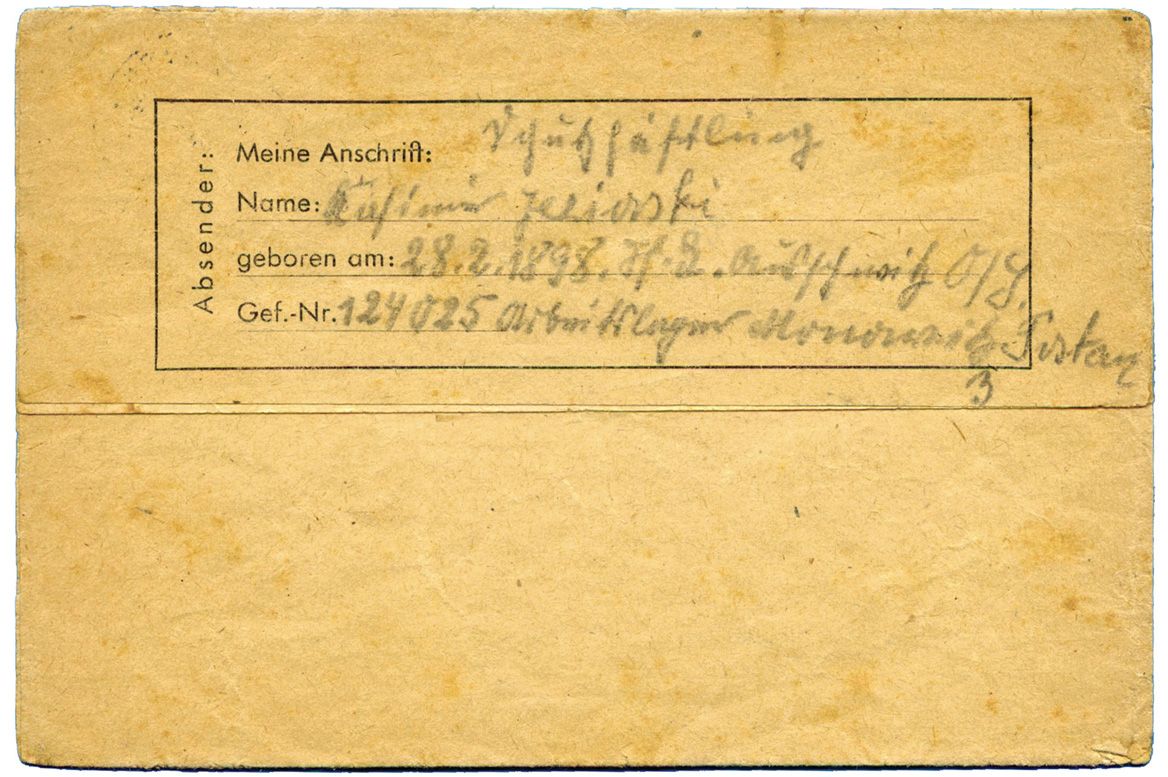 Absender:
Meine Anschrift: Schutzhäftling
Name: Kasimir Jeziorski
geboren am: 28.2.1898. Auschwitz O/S.
Gef.-Nr. 124025 Arbeitslager Monowitz.
3